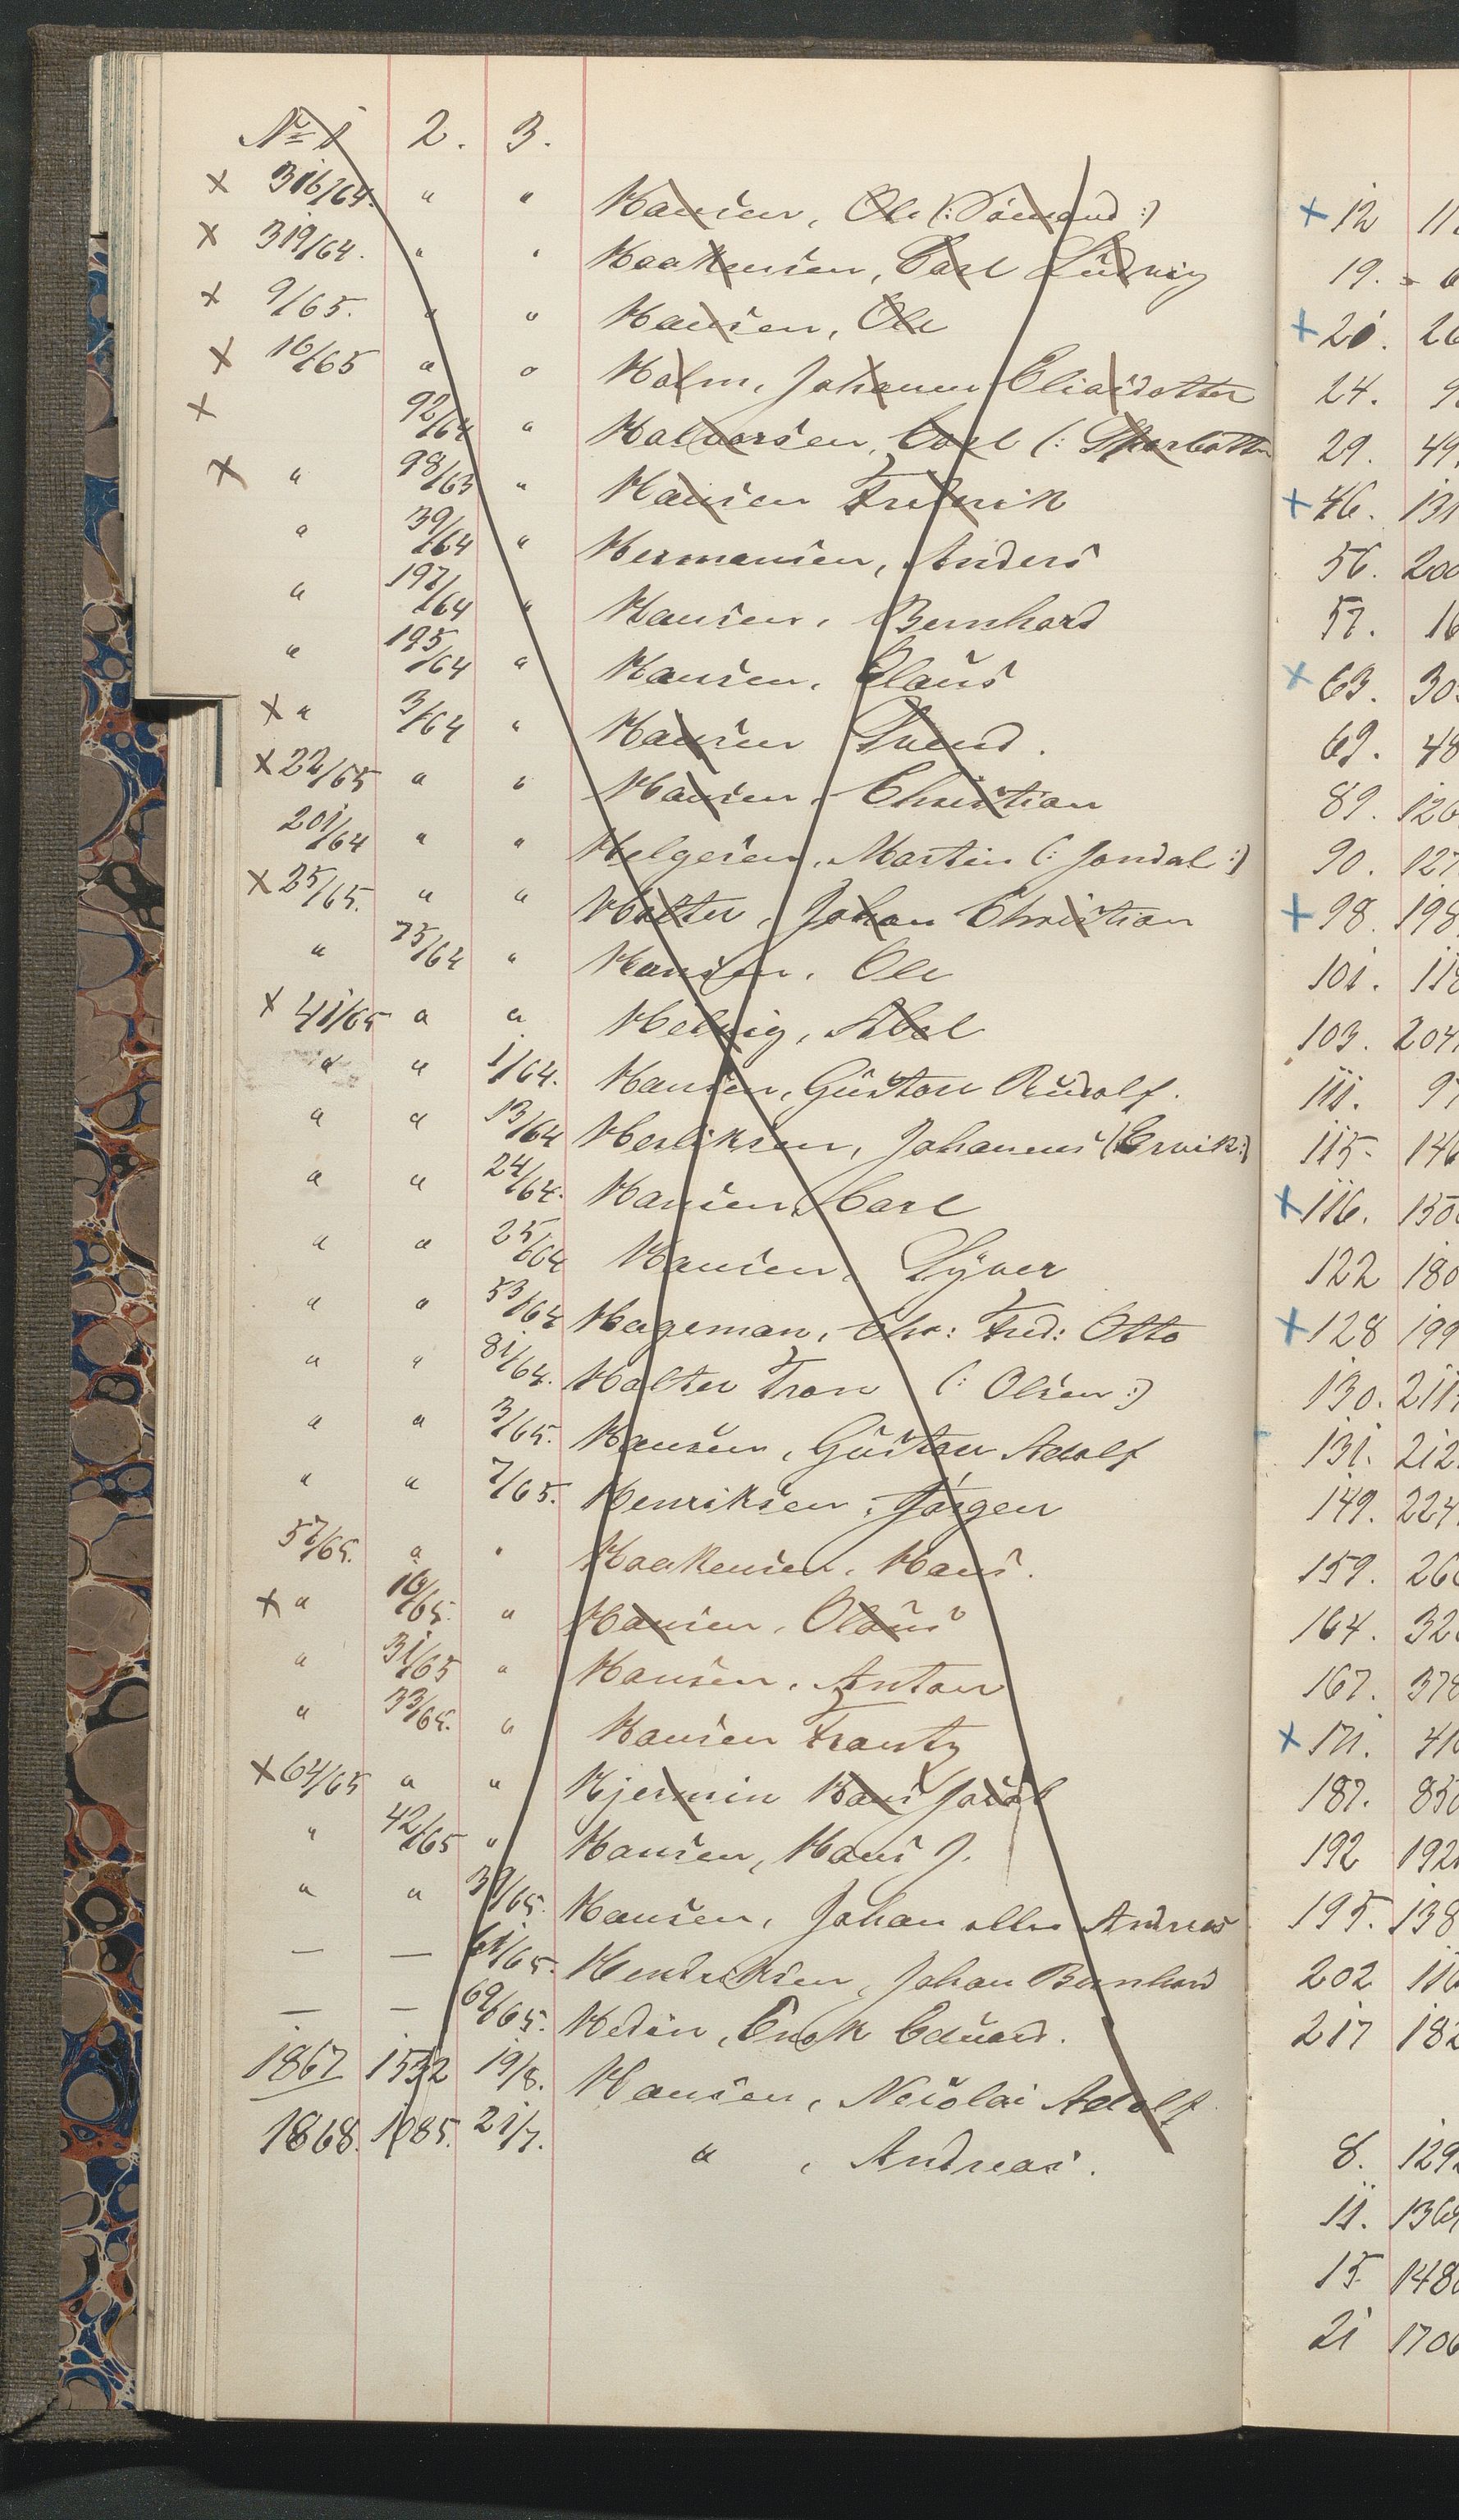 No 1 2. 3.
× 316/64. " " Hansen, Ole (: Sömand :)
× 319/64. " " Haakensen, Carl Ludvig
× 9/65. " " Hansen, Ole
× 16/65 " " Holm, Johanne Eliasdotter
× 92/64 " Halvorsen, Carl (:
× " 98/63 " Hansen Fredrik
" 39/64 " Hermansen, Anders
" 197/64 " Hansen, Bernhard
" 195/64 " Hansen, Claus
× " 3/64 " Hansen Svend.
× 22/65 " " Hansen, Christian
201/64 " " Helgesen, Martin (: Jondal :)
× 25/65. " " Holter, Johan Christian
" 75/64 " Hansen, Ole
× 41/65 " " Helvig, Abel
" " 1/64. Hansen, Gustav Rudolf.
" " 13/64 Herliksen, Johannes (Ervik:)
" " 24/64. Hansen, Carl
" " 25/64 Hansen, Syver
" " 53/64 Hageman, Chr: Fred: Otto
" " 81/64. Holter Tron (: Olsen :)
" " 3/65. Hansen, Gustav Adolf
" " 7/65. Henriksen, Jörgen
57/65. " " Haakensen, Hans.
× " 16/65. " Hansen, Olaus
" 31/65 " Hansen, Anton
" 33/65. " Hansen Frantz
× 64/65 " " Hjermin Hans Jacob
" 42/65 " Hansen, Hans J.
" " 39/65. Hansen, Johan eller Andreas
— — 61/65. Hendriksen, Johan Bernhard
— — 69/65. Hedin, Enok Eduard.
1867 1532 19/8. Hansen, Nicolai Adolf
1868. 1085. 21/7. " , Andreas.
× 12 11
19. 6
× 21. 26
24. 9
29. 49.
× 46. 131
56. 200
57. 16
× 63. 30
69. 48
89. 126
90. 127
× 98. 198
101. 118
103. 204
111. 97
115. 146
× 116. 150
122 180
× 128 199
130. 211
131. 212
149. 224
159. 26
164. 32
167. 378
× 171. 41
187. 85
192 192
195. 138
202 116
217 182
8. 129
11. 136
15 148
21 1706